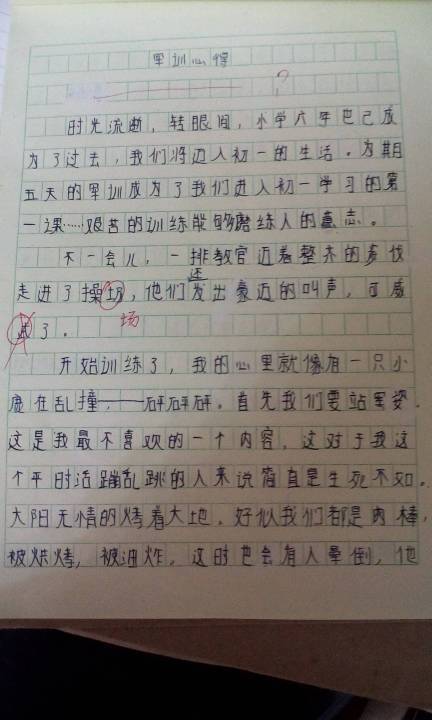 军训心得
?
时光流逝，转眼间，小学六年已已成
为了过去，我们将迈入初一的生活。为期
五天的军训成为了我们进入初一学习的第
一课……艰苦的训练能够磨练人的意志。
不一会儿，一排教官迈着整齐的步伐
走进了操场，他们还发出豪迈的叫声，可威
了。
场
开始训练了，我的心里就像有一只小
鹿在乱撞，——砰砰砰。首先我们要站军姿，
这是我最不喜欢的一个内容，这对于我这
个平时活蹦乱跳的人来说简直是生死不如。
大阳无情的烤着大地，好似我们都是肉棒，
被烘烤，被油炸，这时也会有人晕倒，他